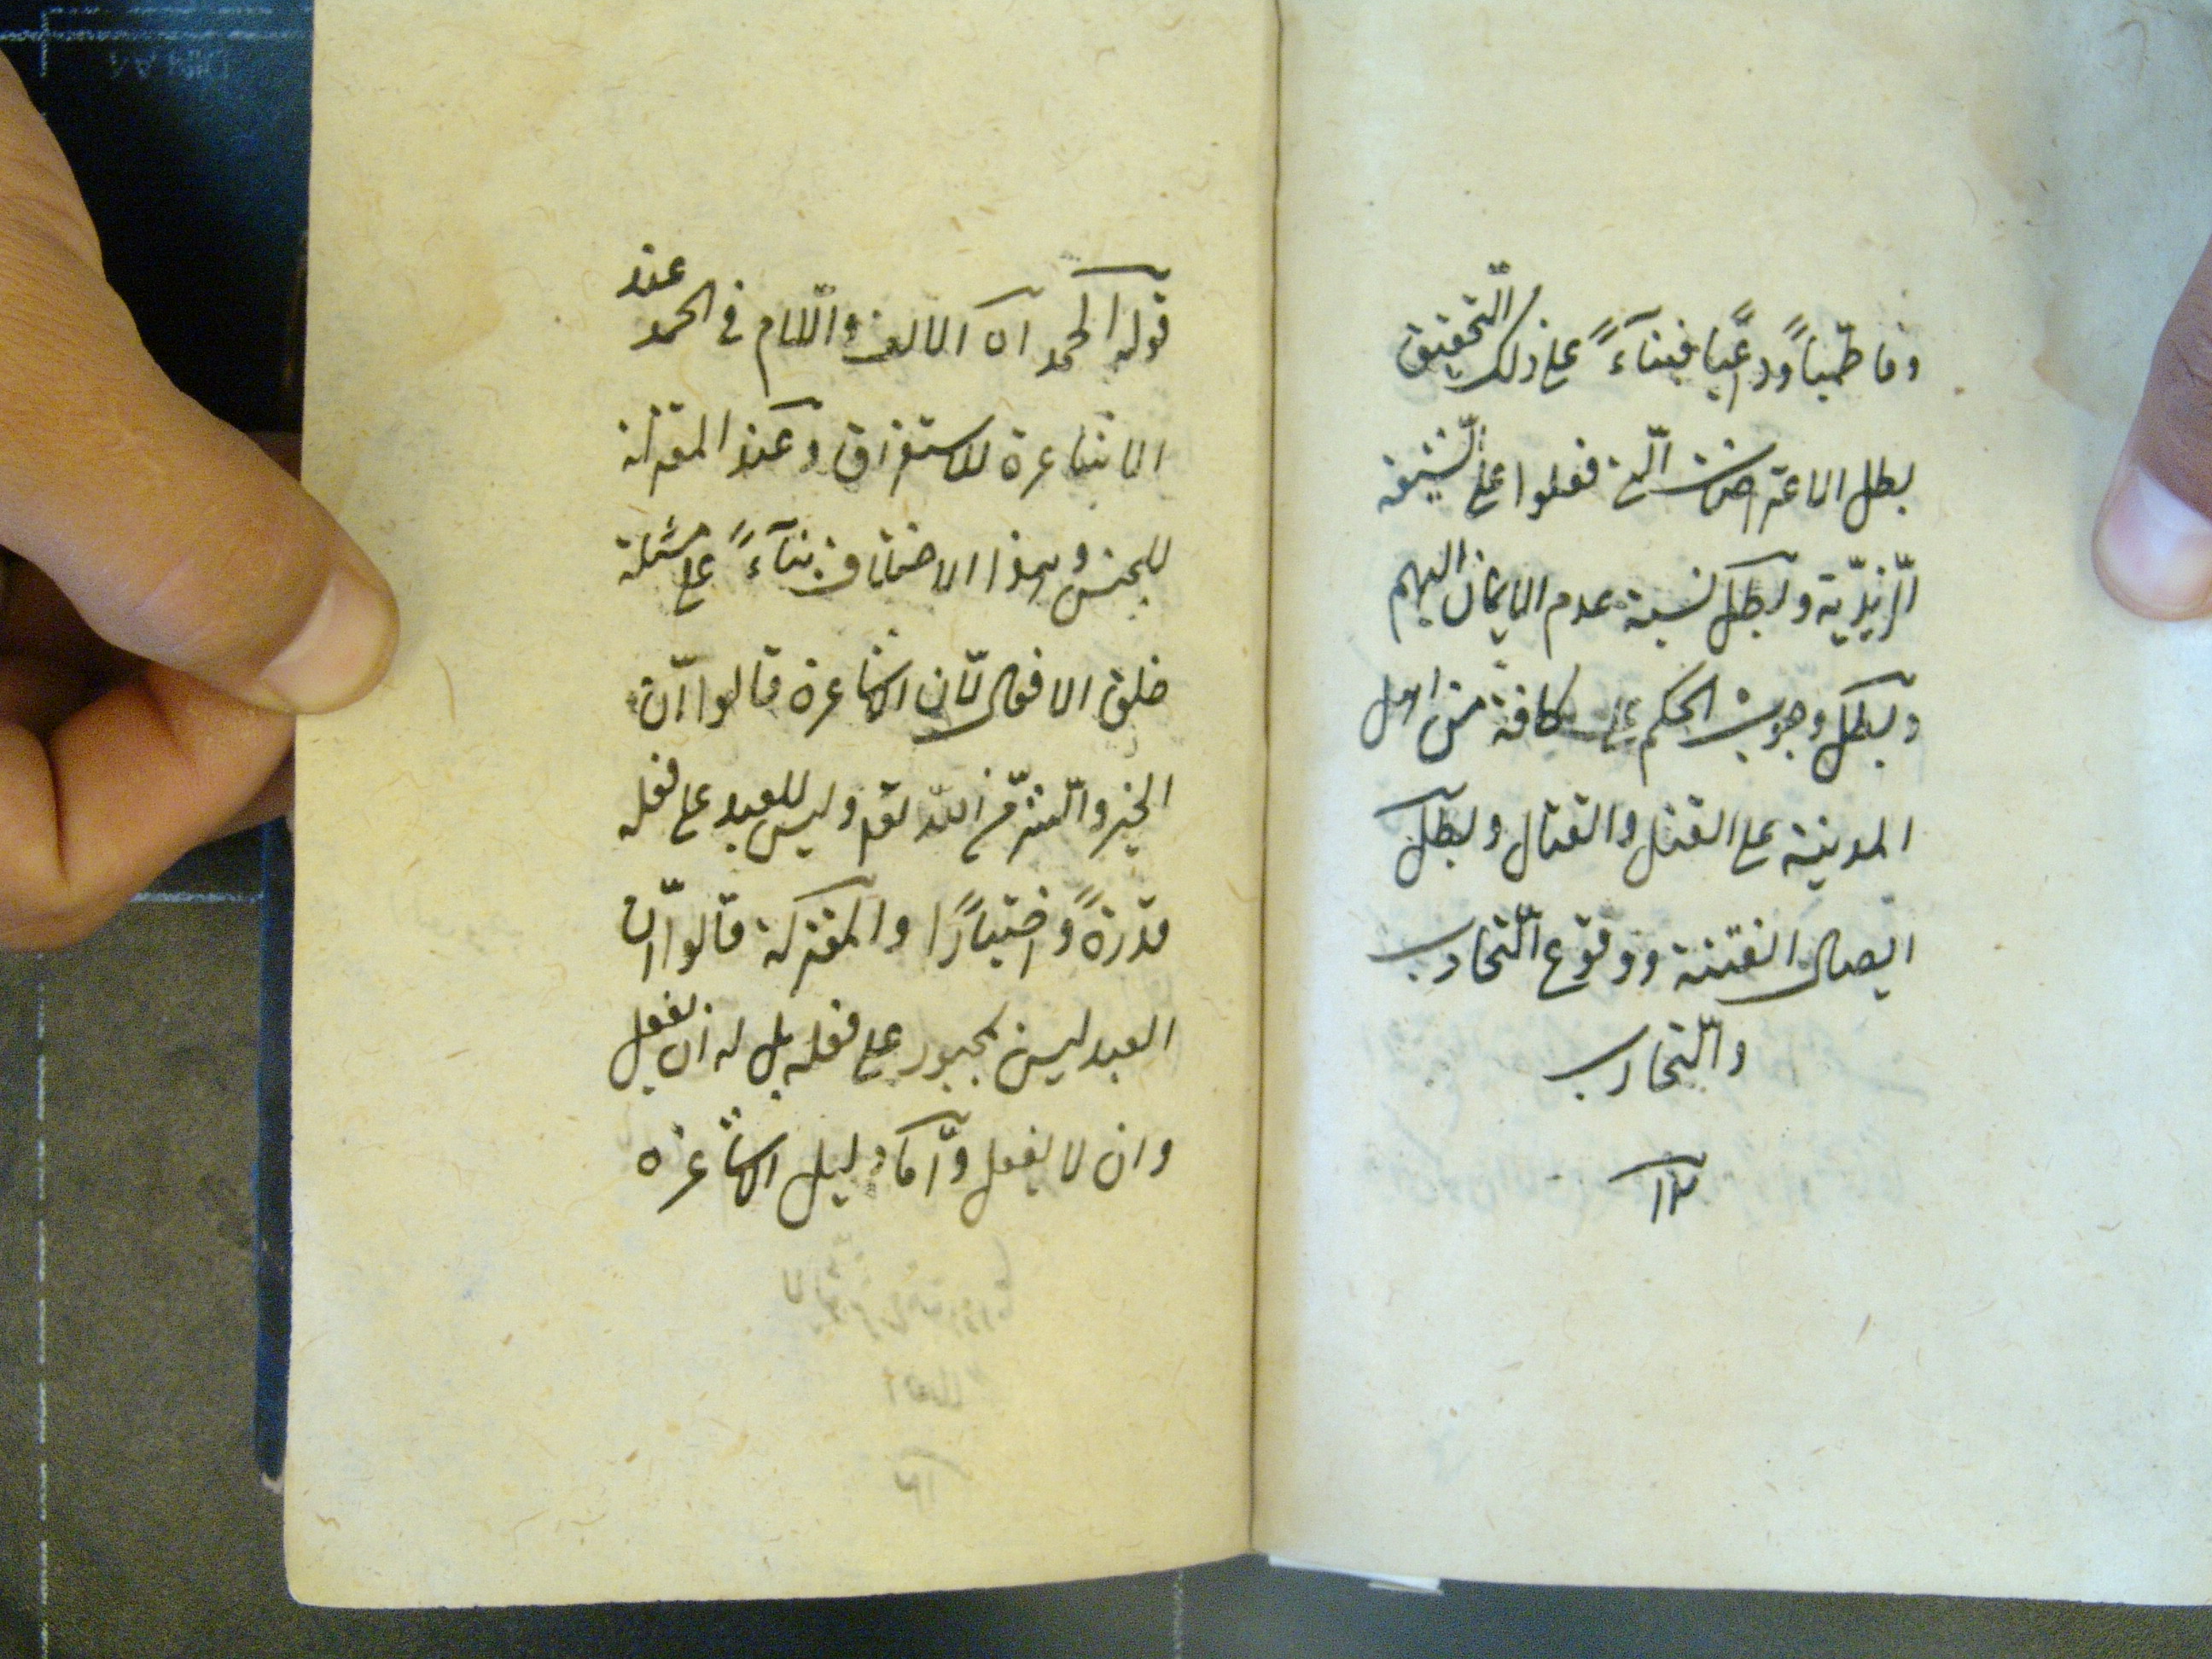 وفاطمیاً وداعیاً فبناءً علی ذلک التحقیق
بطل الاعتراضات الّتی فعلوا علی الشیعه
الزیدیّة وبطل نسبة عدم الایمان الیهم
وبطل وجوب الحکم علی کافة من اهل
المدینة علی القتل والقتال وبطل
ایصال الفتنة ووقوع التحارب
والتحارب
١٢
قوله الحمد ان الالف واللام فی الحمد عند
الاشاعرة للاستغراق وعند المعتزلة
للجنس وهذا الاختلاف بناءً علی مسئلة
خلق الافعال لانّ الاشاعرة قالوا انّ
الخیر والشرّ من الله تعم ولیس للعبد علی فعله
قدرةً واختیارًا والمعتزلة قالوا انّ
العبد لیس بمجبور علی فعله بل له ان یفعل
وان لا یفعل وامّا دلیل الاشاعره